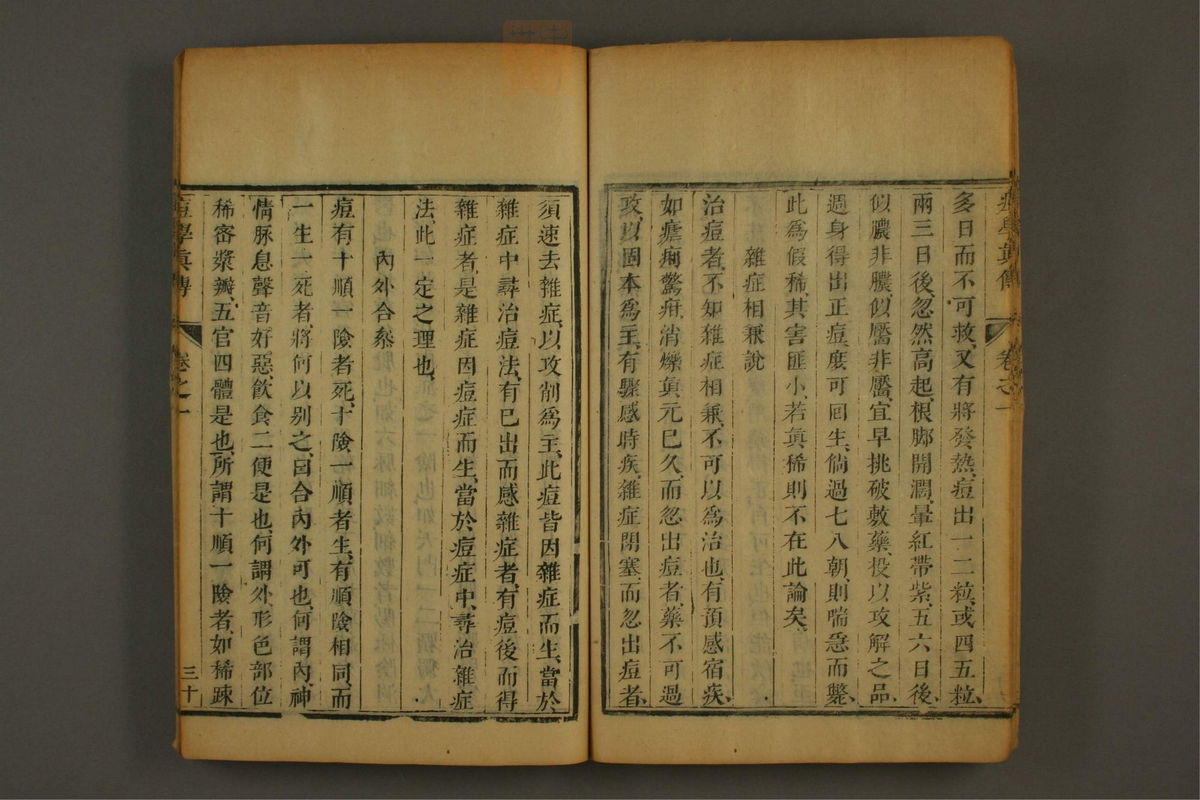 痘學真傳 卷之一
多日而不可救、又有將發熱、痘出一二粒、或四五粒、
兩三日後忽然高起、根脚開濶、暈紅帶紫、五六日後、
似膿非膿、似靨非靨、宜早挑破敷藥、投以攻解之品、
週身得出正痘、庶可囘生、倘過七八朝、則喘急而斃、
此爲假稀、其害匪小、若眞稀則不在此論矣、
雜症相兼說
治痘者、不知雜症相兼、不可以爲治也、有預感宿疾、
如瘧痢驚疳、消爍眞元已久、而忽出痘者、藥不可過
攻、以固本爲主、有驟感時疾、雜症閉塞、而忽出痘者、
須速去雜症、以攻削爲主、此痘皆因雜症而生、當於
雜症中尋治痘法、有已出而感雜症者、有痘後而得
雜症者、是雜症因痘症而生、當於痘症中、尋治雜症
法、此一定之理也、
內外合叅
痘有十順一險者死、十險一順者生、有順險相同、而
一生一死者、將何以别之、曰合內外可也、何謂內、神
情脉息聲音好惡、飲食二便是也、何謂外、形色部位
稀密漿瓣、五官四體是也、所謂十順一險者、如稀踈
痘學真傳 卷之一 三十